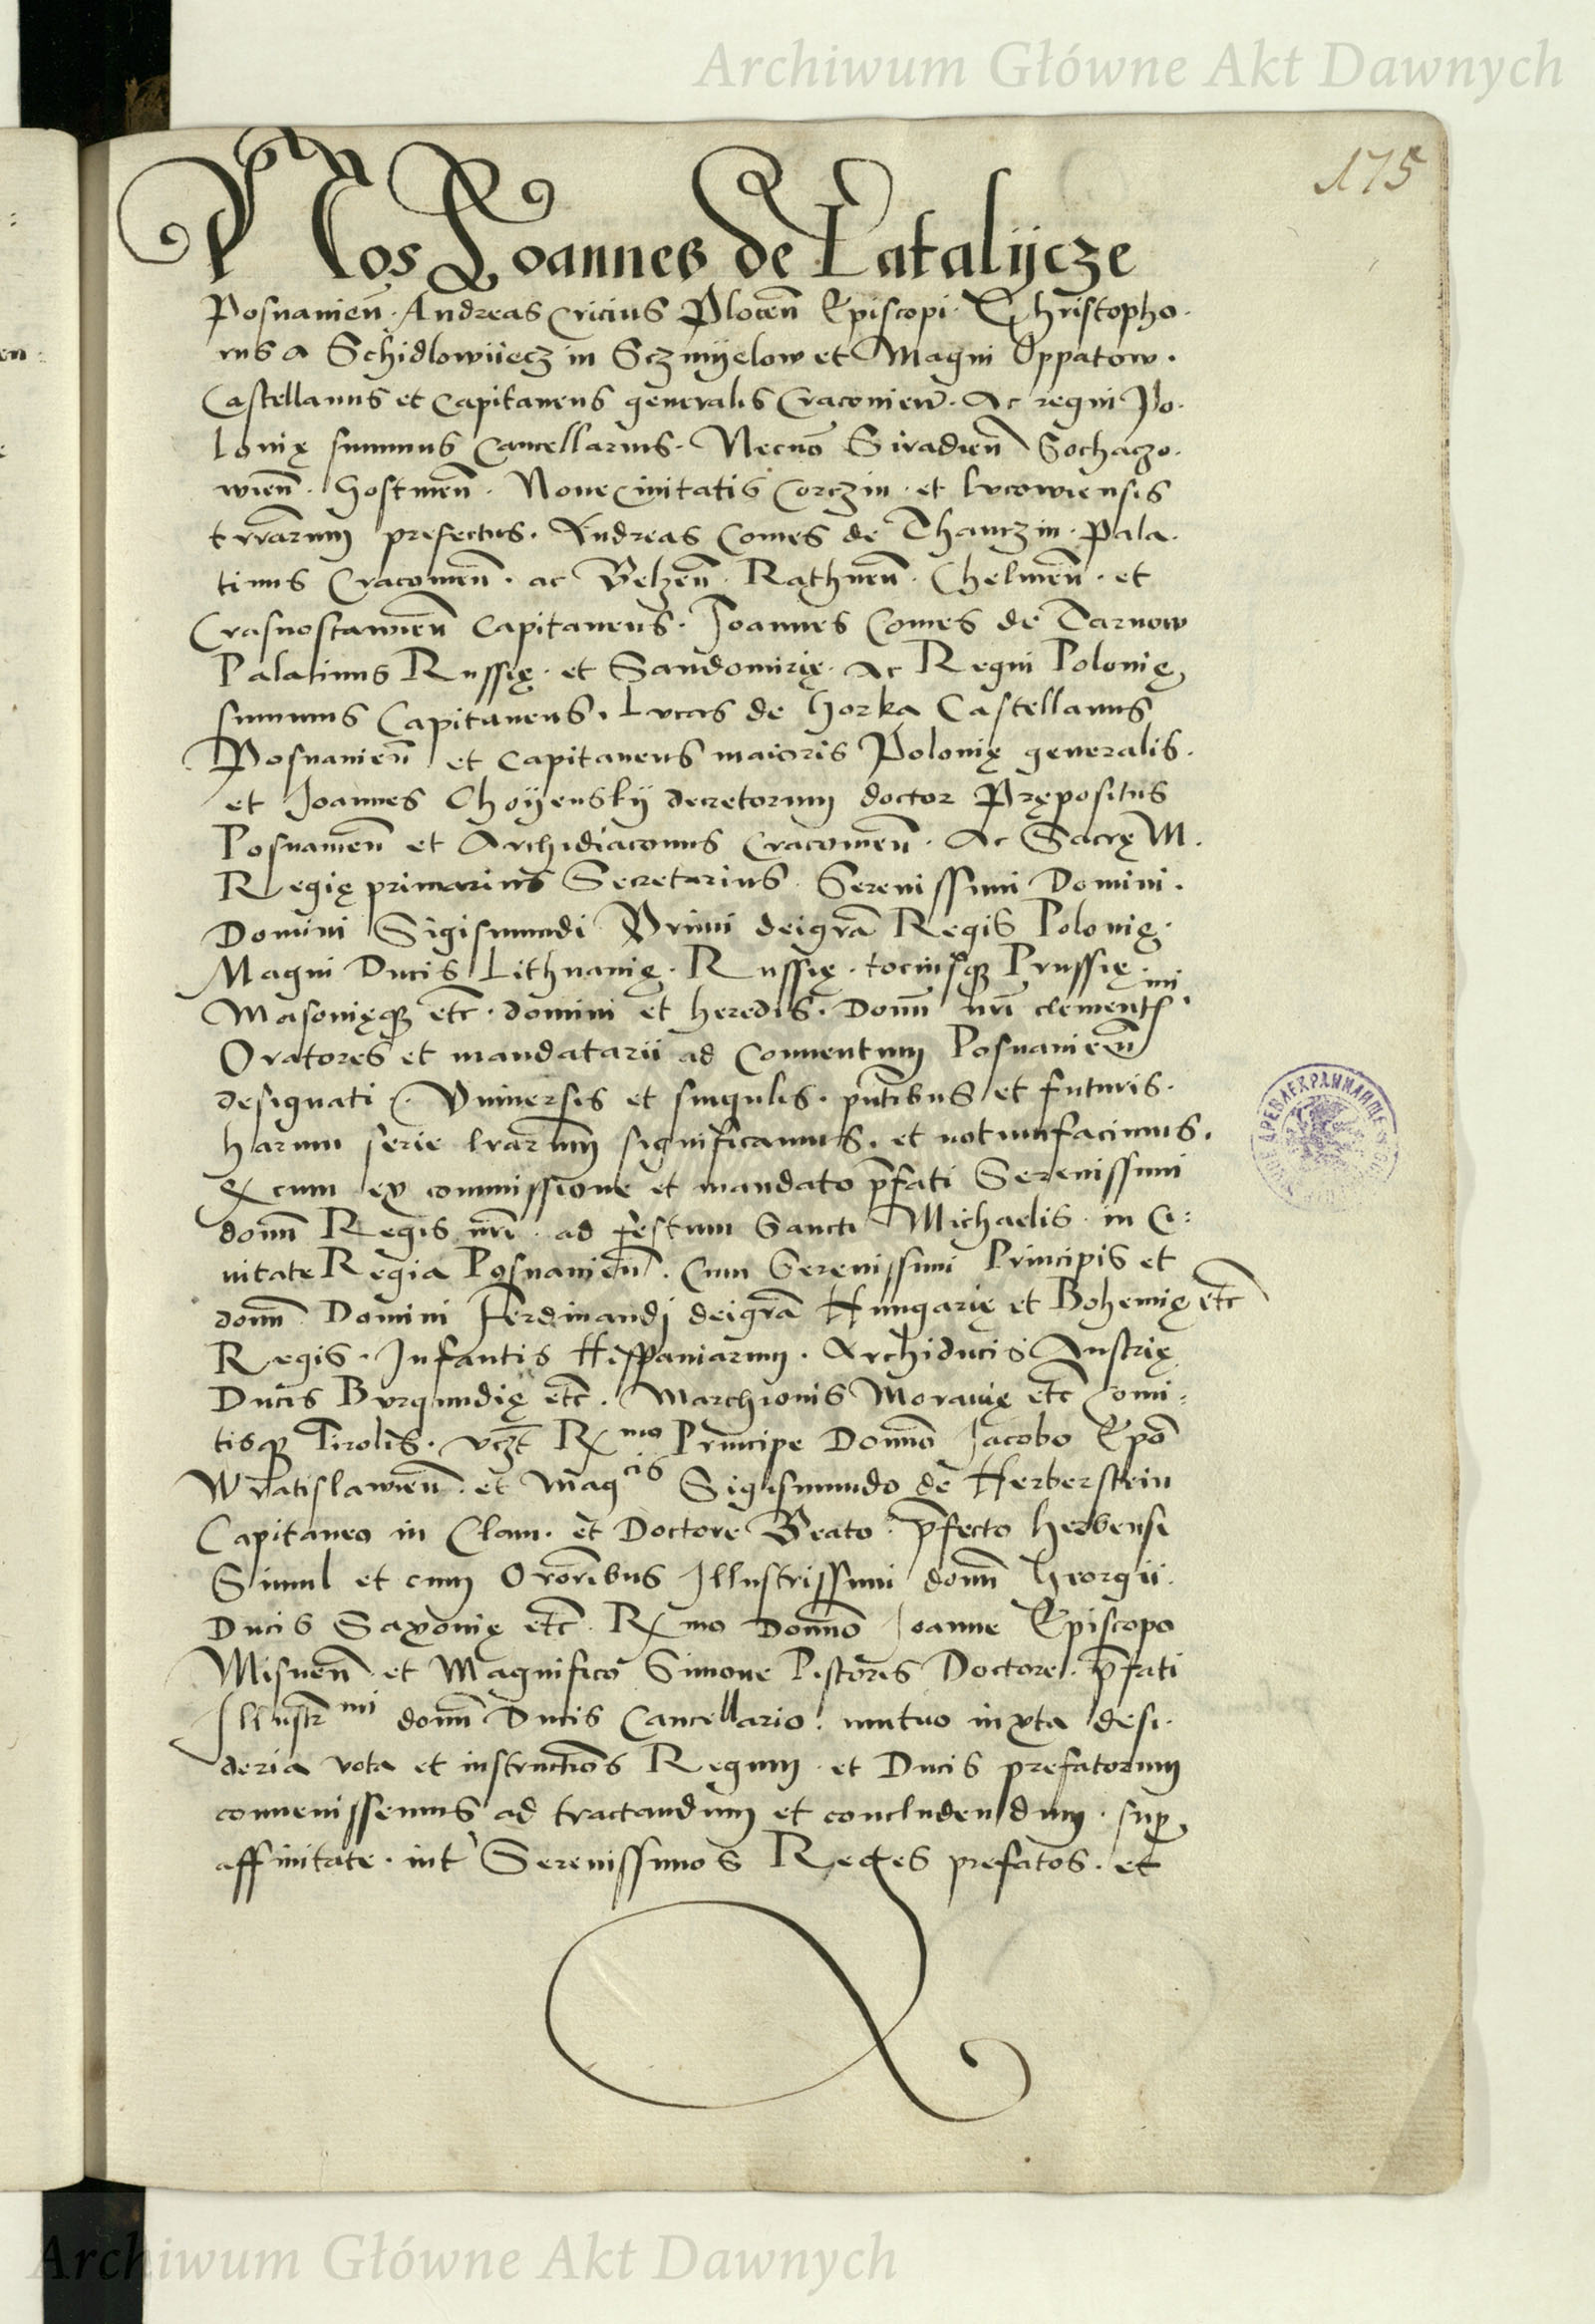 Archiwum Główne Akt Dawnych
175
Nos Joannes de Latalijcze
Posnanien̄. Andreas Cricius Plocen̄ Episcopi. Christopho.
rus a Schidlowijecz in Sczmijelow et Magni Oppatow.
Castellanus et Capitaneus generalis Cracovien̄. Ac regni Po.
lonię summus Cancellarius. Necnō Siradien̄ Sochaczo.
wien̄. Gostinen̄. Nove Civitatis Corczin. et Lucowiensis
trrārum prefectus. Andreas Comes de Thanczin. Pala.
tinus Cracovien̄. ac Belzen̄. Rathnen̄. Chelmen̄. et
Crasnostawien̄ Capitaneus. Joannes Comes de Tarnow
Palatinus Russię. et Sandomirię. Ac Regni Polonię
summus Capitaneus. Lucas de Gorka Castellanus
Posnanien̄ et Capitaneus maioris Polonię generalis.
et Joannes Choijenskij decretorum doctor Prępositus
Posnanien̄ et Archidiaconus Cracovien̄. Ac Sacrę M.
Regię primarius Secretarius. Serenissimi Domini.
Domini Sigismundi Primi dei grā Regis Polonię.
Magni Ducis Lithuanię. Russię. tociusqꝫ Prussię.
Masovięqꝫ etc̄. domini et heredis. Domī nrī clementꝭ mi
Oratores et mandatarii ad Conventum Posnanien̄
designati. Universis et singulis. pn̄tibus et futuris.
harum serie lrārum significamus. et notum facimus.
Qꝫ cum ex commissione et mandato p̄fati Serenissimi
domī Regis nrī. ad festum Sancti Michaelis. in Ci:
vitate Regia Posnanien̄. Cum Serenissimi Principis et
domī Domini Ferdinandj dei grā Hungarię et Bohemię etc̄
Regis. Infantis Hispaniarum. Archiducis Austrię
Ducis Burgundię etc̄. Marchionis Moravię etc̄ Comi:
tisqꝫ Tirolis. vcꝫt R mo Principe Dominō Jacobo Epō
Wratislawien̄. et Mag cis Sigismundo de Herberstein
Capitaneo in Clam. et Doctore Beato. p̄fecto
Simul et cum Orōribus Illustrissimi domī Georgii.
Ducis Saxonię etc̄. R mo Dominō Joanne Episcopo
Misnen̄ et Magnifico Simone Pistoris Doctore. p̄fati
Illustr mi domī Ducis Cancellario. mutuo iuxta desi.
deria vota et instructiōes Regum. et Ducis prefatorum
convenissemus ad tractandum et concludendum. sup̄
affinitate. int̄ Serenissimos Reges prefatos. et
Archiwum Główne Akt Dawnych